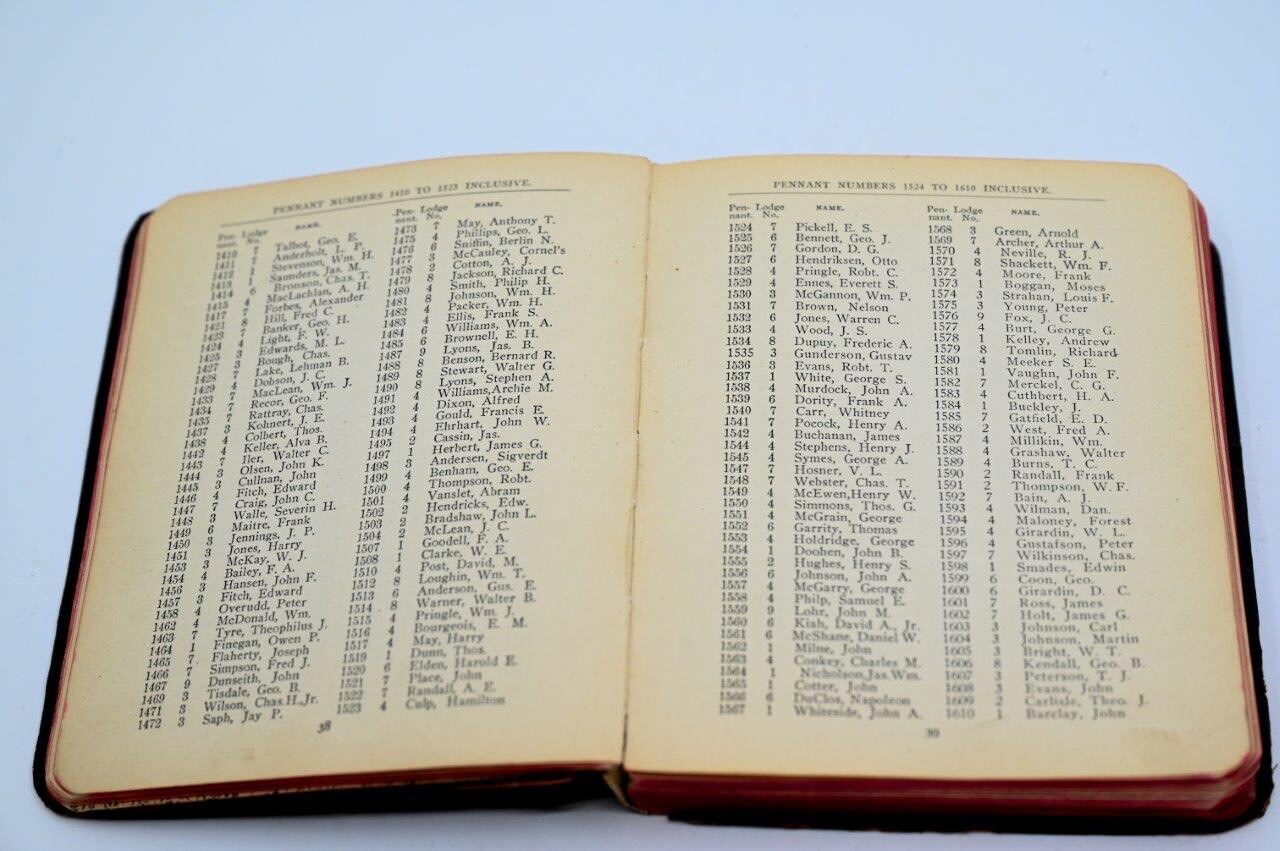 PENNANT NUMBERS 1410 TO 1523 INCLUSIVE.
Pen- Lodge NAME.
nant. No.
1410 7 Talbot, Geo. E.
1411 7 Anderholt, L. P.
1412 1 Stevenson, Wm. H.
1413 1 Saunders, Jas. M.
1414 6 Bronson, Chas. T.
1415 4 MacLachlan, A. H.
1417 7 Forbes, Alexander
1421 8 Hill, Fred C.
1423 7 Banker, Geo. H.
1424 4 Light, F. W.
1425 3 Edwards, M. L.
1427 3 Bough, Chas.
1428 7 Lake, Lehman B.
1429 4 Dobson, J. C.
1433 7 MacLean, Wm. J.
1434 7 Recor, Geo. F.
1435 7 Rattray, Chas.
1437 3 Kohnert, J. E.
1438 4 Colbert, Thos.
1442 4 Keller, Alva B.
1443 7 Iler, Walter C.
1444 3 Olsen, John K.
1445 3 Cullnan, John
1446 4 Fitch, Edward
1447 7 Craig, John C.
1448 3 Walle, Severin H.
1449 6 Maitre, Frank
1450 3 Jennings, J. P.
1451 3 Jones, Harry
1453 3 McKay, W. J.
1454 4 Bailey, F. A.
1456 3 Hansen, John F.
1457 3 Fitch, Edward
1458 4 Overudd, Peter
1462 4 McDonald, Wm.
1463 7 Tyre, Theophilus J.
1464 1 Finegan, Owen P.
1465 7 Flaherty, Joseph
1466 7 Simpson, Fred J.
1467 9 Dunseith, John
1469 3 Tisdale, Geo. B.
1471 3 Wilson, Chas.H.,Jr.
1472 3 Saph, Jay P.
Pen- Lodge NAME.
nant. No.
1473 7 May, Anthony T.
1475 4 Phillips, Geo. L.
1476 6 Sniffin, Berlin N.
1477 3 McCauley, Cornel's
1478 2 Cotton, A. J.
1479 8 Jackson, Richard C.
1480 4 Smith, Philip H.
1481 8 Johnson, Wm. H.
1482 4 Packer, Wm. H.
1483 4 Ellis, Frank S.
1484 6 Williams, Wm. A.
1485 6 Brownell, E. H.
1487 9 Lyons, Jas. B.
1488 8 Benson, Bernard R.
1489 8 Stewart, Walter G.
1490 8 Lyons, Stephen A.
1491 4 Williams,Archie M.
1492 4 Dixon, Alfred
1493 4 Gould, Francis E.
1494 4 Ehrhart, John W.
1495 2 Cassin, Jas.
1497 1 Herbert, James G.
1498 3 Andersen, Sigverdt
1499 4 Benham, Geo. E.
1500 4 Thompson, Robt.
1501 4 Vanslet, Abram
1502 2 Hendricks, Edw.
1503 2 Bradshaw, John L.
1504 2 McLean, J. C.
1507 1 Goodell, F. A.
1508 1 Clarke, W. E.
1510 4 Post, David, M.
1512 8 Loughin, Wm. T.
1513 6 Anderson, Gus. E.
1514 8 Warner, Walter B.
1515 4 Pringle, Wm. J.
1516 4 Bourgeois, E. M.
1517 4 May, Harry
1519 1 Dunn, Thos.
1520 6 Elden, Harold E.
1521 7 Place, John
1522 7 Randall, A. E.
1523 4 Culp, Hamilton
38
PENNANT NUMBERS 1524 TO 1610 INCLUSIVE.
Pen- Lodge NAME.
nant. No.
1524 7 Pickell, E. S.
1525 6 Bennett, Geo. J.
1526 7 Gordon, D. G.
1527 6 Hendriksen, Otto
1528 4 Pringle, Robt. C.
1529 4 Ennes, Everett S.
1530 3 McGannon, Wm. P.
1531 7 Brown, Nelson
1532 6 Jones, Warren C.
1533 4 Wood, J. S.
1534 8 Dupuy, Frederic A.
1535 3 Gunderson, Gustav
1536 3 Evans, Robt. T.
1537 1 White, George S.
1538 4 Murdock, John A.
1539 6 Dority, Frank A.
1540 7 Carr, Whitney
1541 7 Pocock, Henry A.
1542 4 Buchanan, James
1544 4 Stephens, Henry J.
1545 4 Symes, George A.
1547 7 Hosner, V. L.
1548 7 Webster, Chas. T.
1549 4 McEwen,Henry W.
1550 4 Simmons, Thos. G.
1551 4 McGrain, George
1552 6 Garrity, Thomas
1553 4 Holdridge, George
1554 1 Doohen, John B.
1555 2 Hughes, Henry S.
1556 6 Johnson, John A.
1557 4 McGarry, George
1558 4 Philp, Samuel E.
1559 9 Lohr, John M.
1560 6 Kiah, David A., Jr.
1561 6 McShane, Daniel W.
1562 1 Milne, John
1563 4 Conkey, Charles M.
1564 1 Nicholson,Jas.Wm.
1565 1 Cotter, John
1566 6 DuClos, Napoleon
1567 1 Whiteside, John A.
Pen- Lodge NAME.
nant. No.
1568 3 Green, Arnold
1569 7 Archer, Arthur A.
1570 4 Neville, R. J.
1571 8 Shackett, Wm. F.
1572 4 Moore, Frank
1573 1 Boggan, Moses
1574 3 Strahan, Louis F.
1575 3 Young, Peter
1576 9 Fox, J. C.
1577 4 Burt, George G.
1578 1 Kelley, Andrew
1579 8 Tomlin, Richard
1580 4 Meeker S. E.
1581 1 Vaughn, John F.
1582 7 Merckel, C. G.
1583 4 Cuthbert, H. A.
1584 1 Buckley, J.
1585 7 Gatfield, E. D.
1586 2 West, Fred A.
1587 4 Millikin, Wm.
1588 4 Grashaw, Walter
1589 4 Burns, T. C.
1590 2 Randall, Frank
1591 2 Thompson, W. F.
1592 7 Bain, A. J.
1593 4 Wilman, Dan.
1594 4 Maloney, Forest
1595 4 Girardin, W. L.
1596 4 Gustafson, Peter
1597 7 Wilkinson, Chas.
1598 1 Smades, Edwin
1599 6 Coon, Geo.
1600 6 Girardin, D. C.
1601 7 Ross, James
1602 7 Holt, James G.
1603 3 Johnson, Carl
1604 3 Johnson, Martin
1605 3 Bright, W. T.
1606 8 Kendall, Geo. B.
1607 3 Peterson, T. J.
1608 3 Evans, John
1609 2 Carlisle, Theo. J.
1610 1 Barclay, John
39